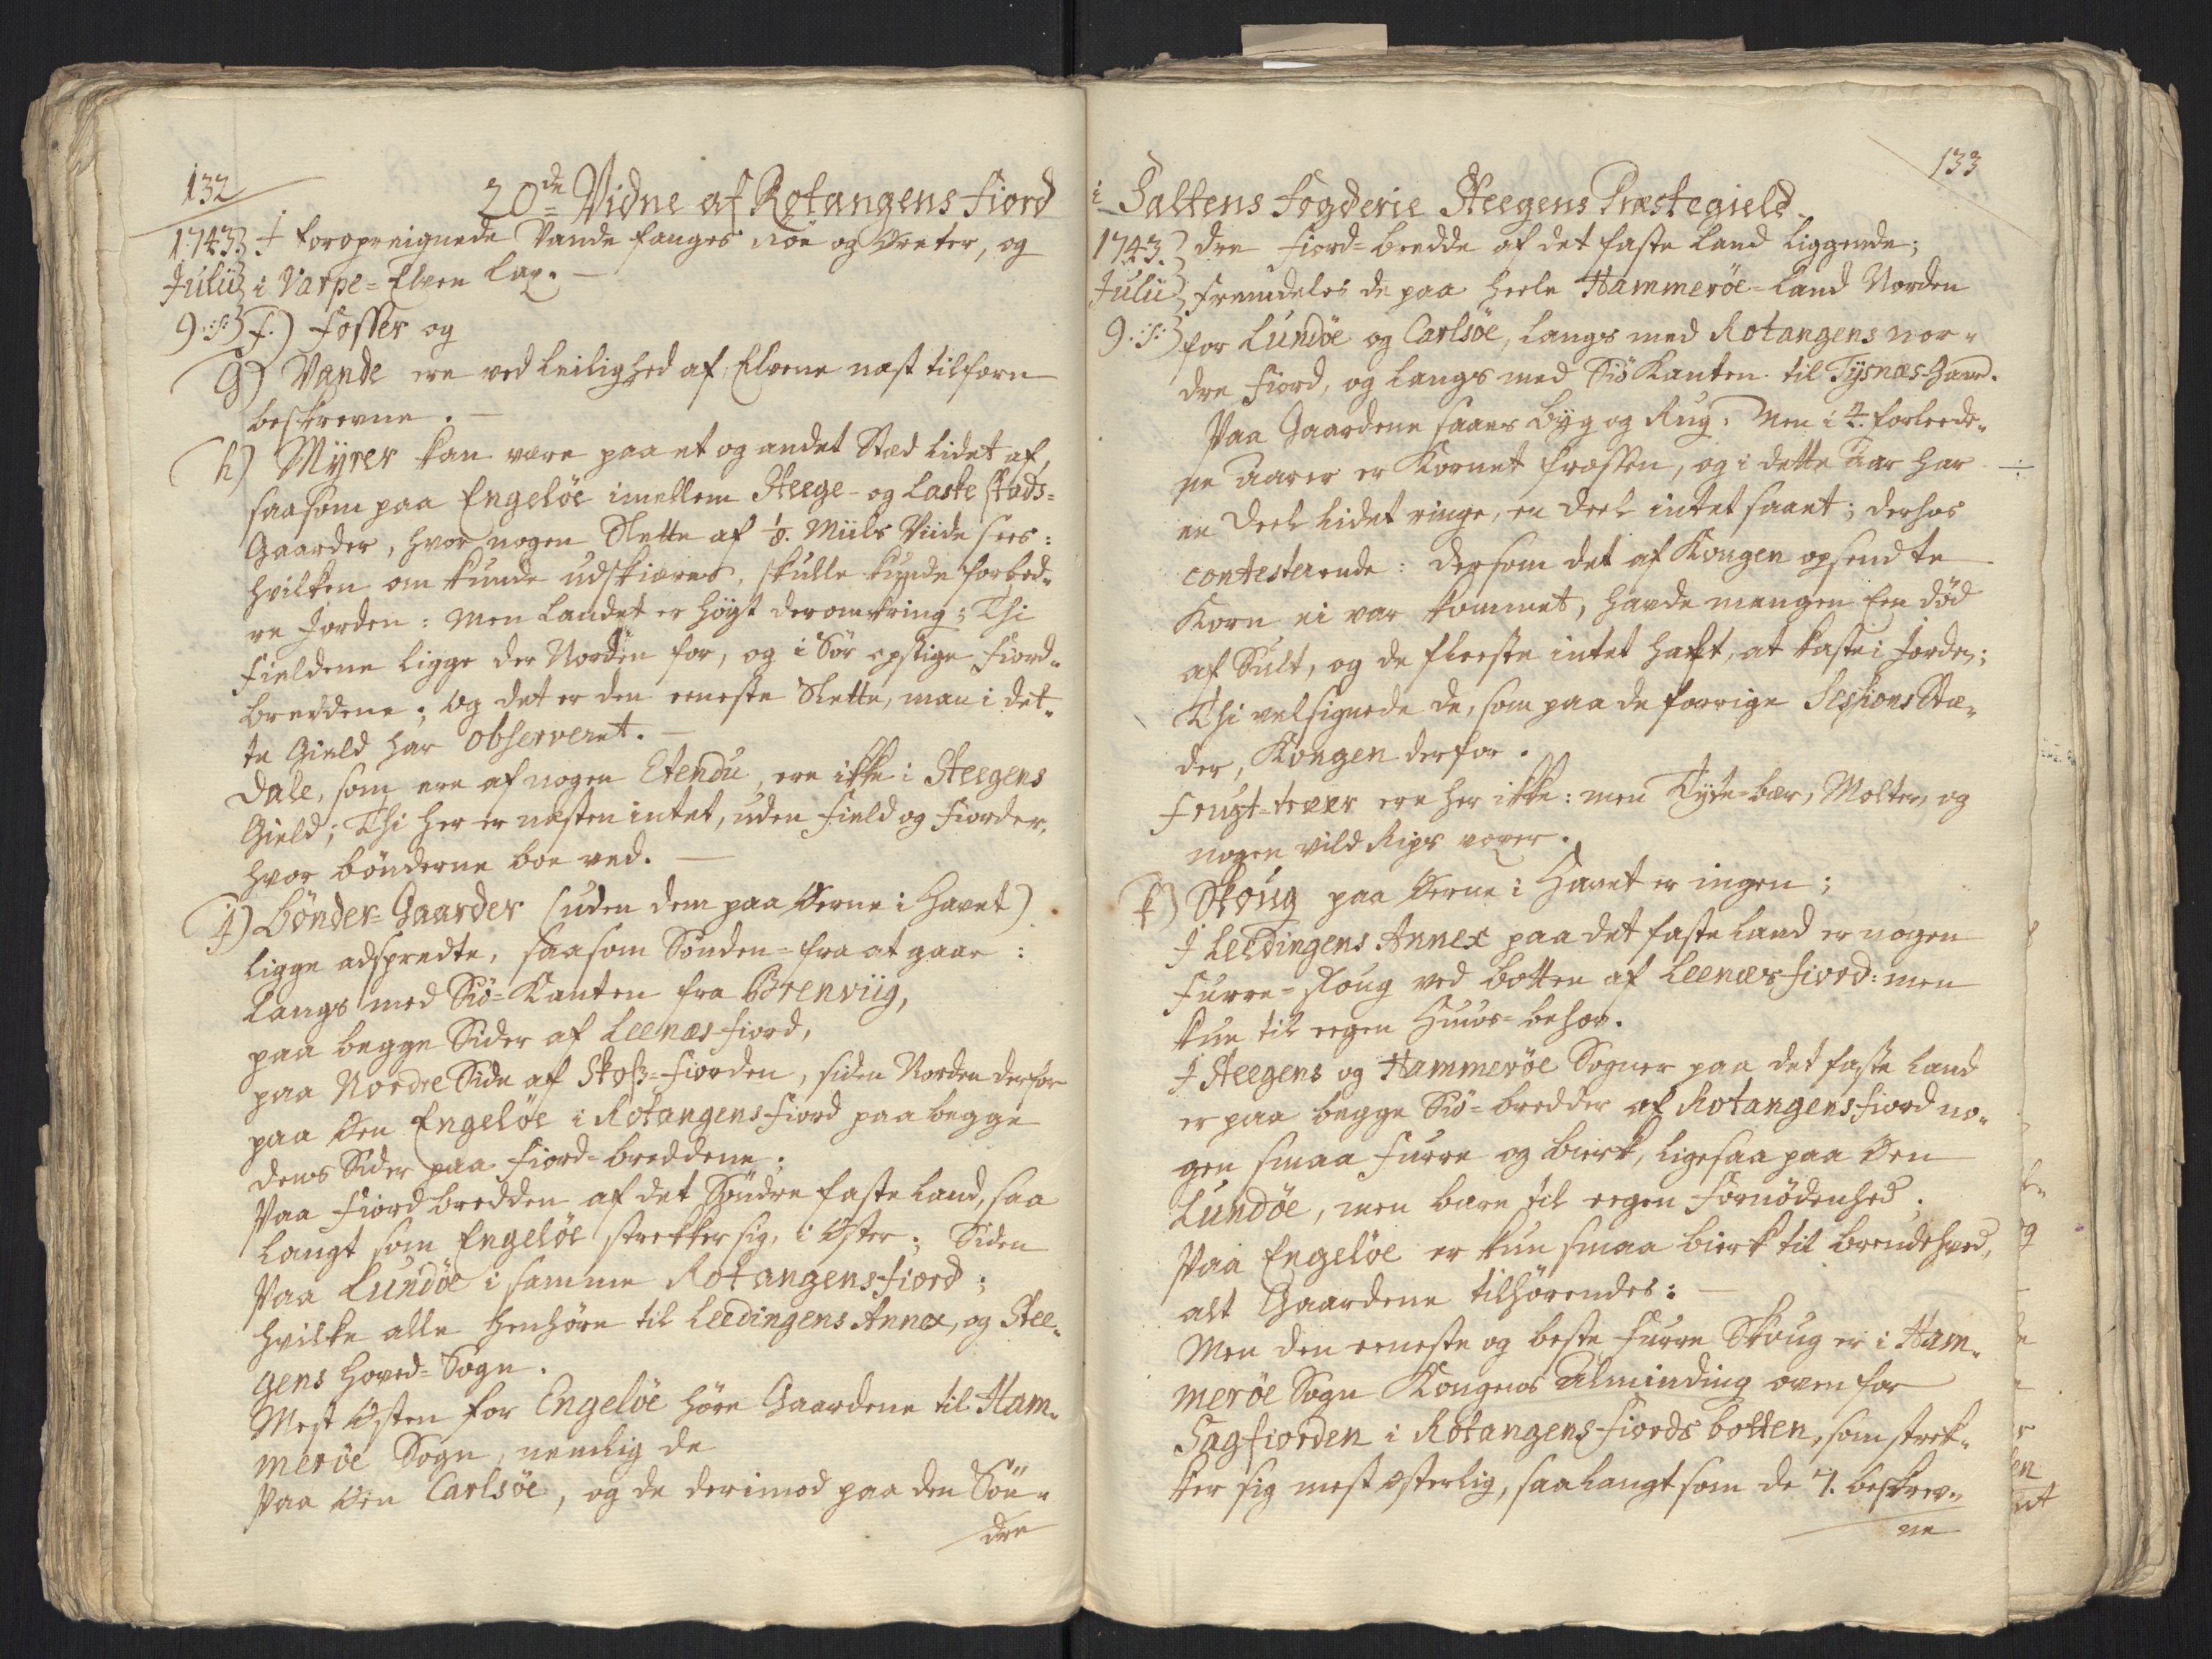 132
20de Vidne af Rotangens Fiord
1743. I foropregnede Vande fanges Röe og Ørreter, og
Julii i Varpe=Elven Lax. —
9:s: f.) Fosser og
g) Vande ere ved Leilighed af Elvene næst tilforn
beskrevne. —
h) Myrer kan være paa et og andet Stæd lidet af,
saasom paa Engelöe imellem Steege- og Laske stads=
Gaarder, hvor nogen Slette af 1/8. Miils Viide sees:
hvilken om kunde udskiæres, skulle kunde forbed=
re Jorden: Men Landet er høyt deromkring; Thi
Fieldene ligge der Norden for, og i Sör opstige Fiord=
breddene; og det er den eeneste Slette, man i det=
te Gield har observeret. —
Dale, som ere af nogen Etendu, ere ikke i Steegens
Gield; Thi her er næsten intet, uden Field og Fiorder,
hvor bönderne boe ved. —
j) Bönder=Gaarder (uden dem paa Øerne i Havet)
ligge adspredte, saasom Sönden=fra at gaae:
Langs med Siö=Kanten fra Brenviig,
paa begge Sider af Leenæs fiord,
paa Nordre Side af Skoß=Fiorden, siden Norden derfor
paa Øen Engelöe i Rotangens fiord paa begge
dens Sider paa Fiord=breddene;
Paa Fiord bredden af det Söndre faste Land, saa
langt som Engelöe strekker sig, i Øster; Siden
Paa Lundöe i samme Rotangens-fiord;
hvilke alle henhöre til Leedingens Annex, og Stee=
gens Hoved=Sogn.
Mest Østen for Engelöe höre Gaardene til Ham=
meröe Sogn, nemlig de
Paa Øen Carlsöe, og de derimod paa den Sön=
dre
133
i Saltens Fogderie Steegens Præstegield.
1743. dre Fiord=bredde af det faste Land liggende;
Julii Fremdeles de paa heele Hammeröe=Land Norden
9:s: for Lundöe og Carlsöe, langs med Rotangens nor=
dre Fiord, og langs med Siö Kanten til Tysnæs-Gaard.
Paa Gaardene saaes Byg og Rug. Men i 4. forleede=
ne Aarer er Kornet frossen, og i dette Aar har ÷
en Deel lidet ringe, en Deel intet saaet; derhos
contesterende: Dersom det af Kongen opsendte
Korn ei var kommet, havde mangen Een död
af Sult, og de fleeste intet havt, at kaste i Jorden;
Thi velsignede de, som paa de forrige Sessions Stæ=
der, Kongen derfor.
Frugt-træer ere her ikke: men Tyte-bær, Molter, og
nogen vild Rips voxer.
k) Skoug paa Øerne i Havet er ingen;
I Leedingens Annex paa det faste Land er nogen
Furre=skoug ved Botten af Leenæs fiord: men
kun til eegen Huus-behov.
I Steegens og Hammeröe Sogner paa det faste Land
er paa begge Siö=bredder af Rotangens fiord no=
gen smaa Furre og Birk, ligesaa paa Øen
Lundöe, men bare til eegen Fornödenhed;
Paa Engelöe er kun smaa Birk til brendehved,
alt Gaardene tilhörendes: —
Men den eeneste og beste Furre Skoug er i Ham=
meröe Sogn Kongens Alminding oven for
Sagfiorden i Rotangens-Fiords botten, som strek=
ker sig mest østerlig, saa langt som de 7. beskrev=
ne